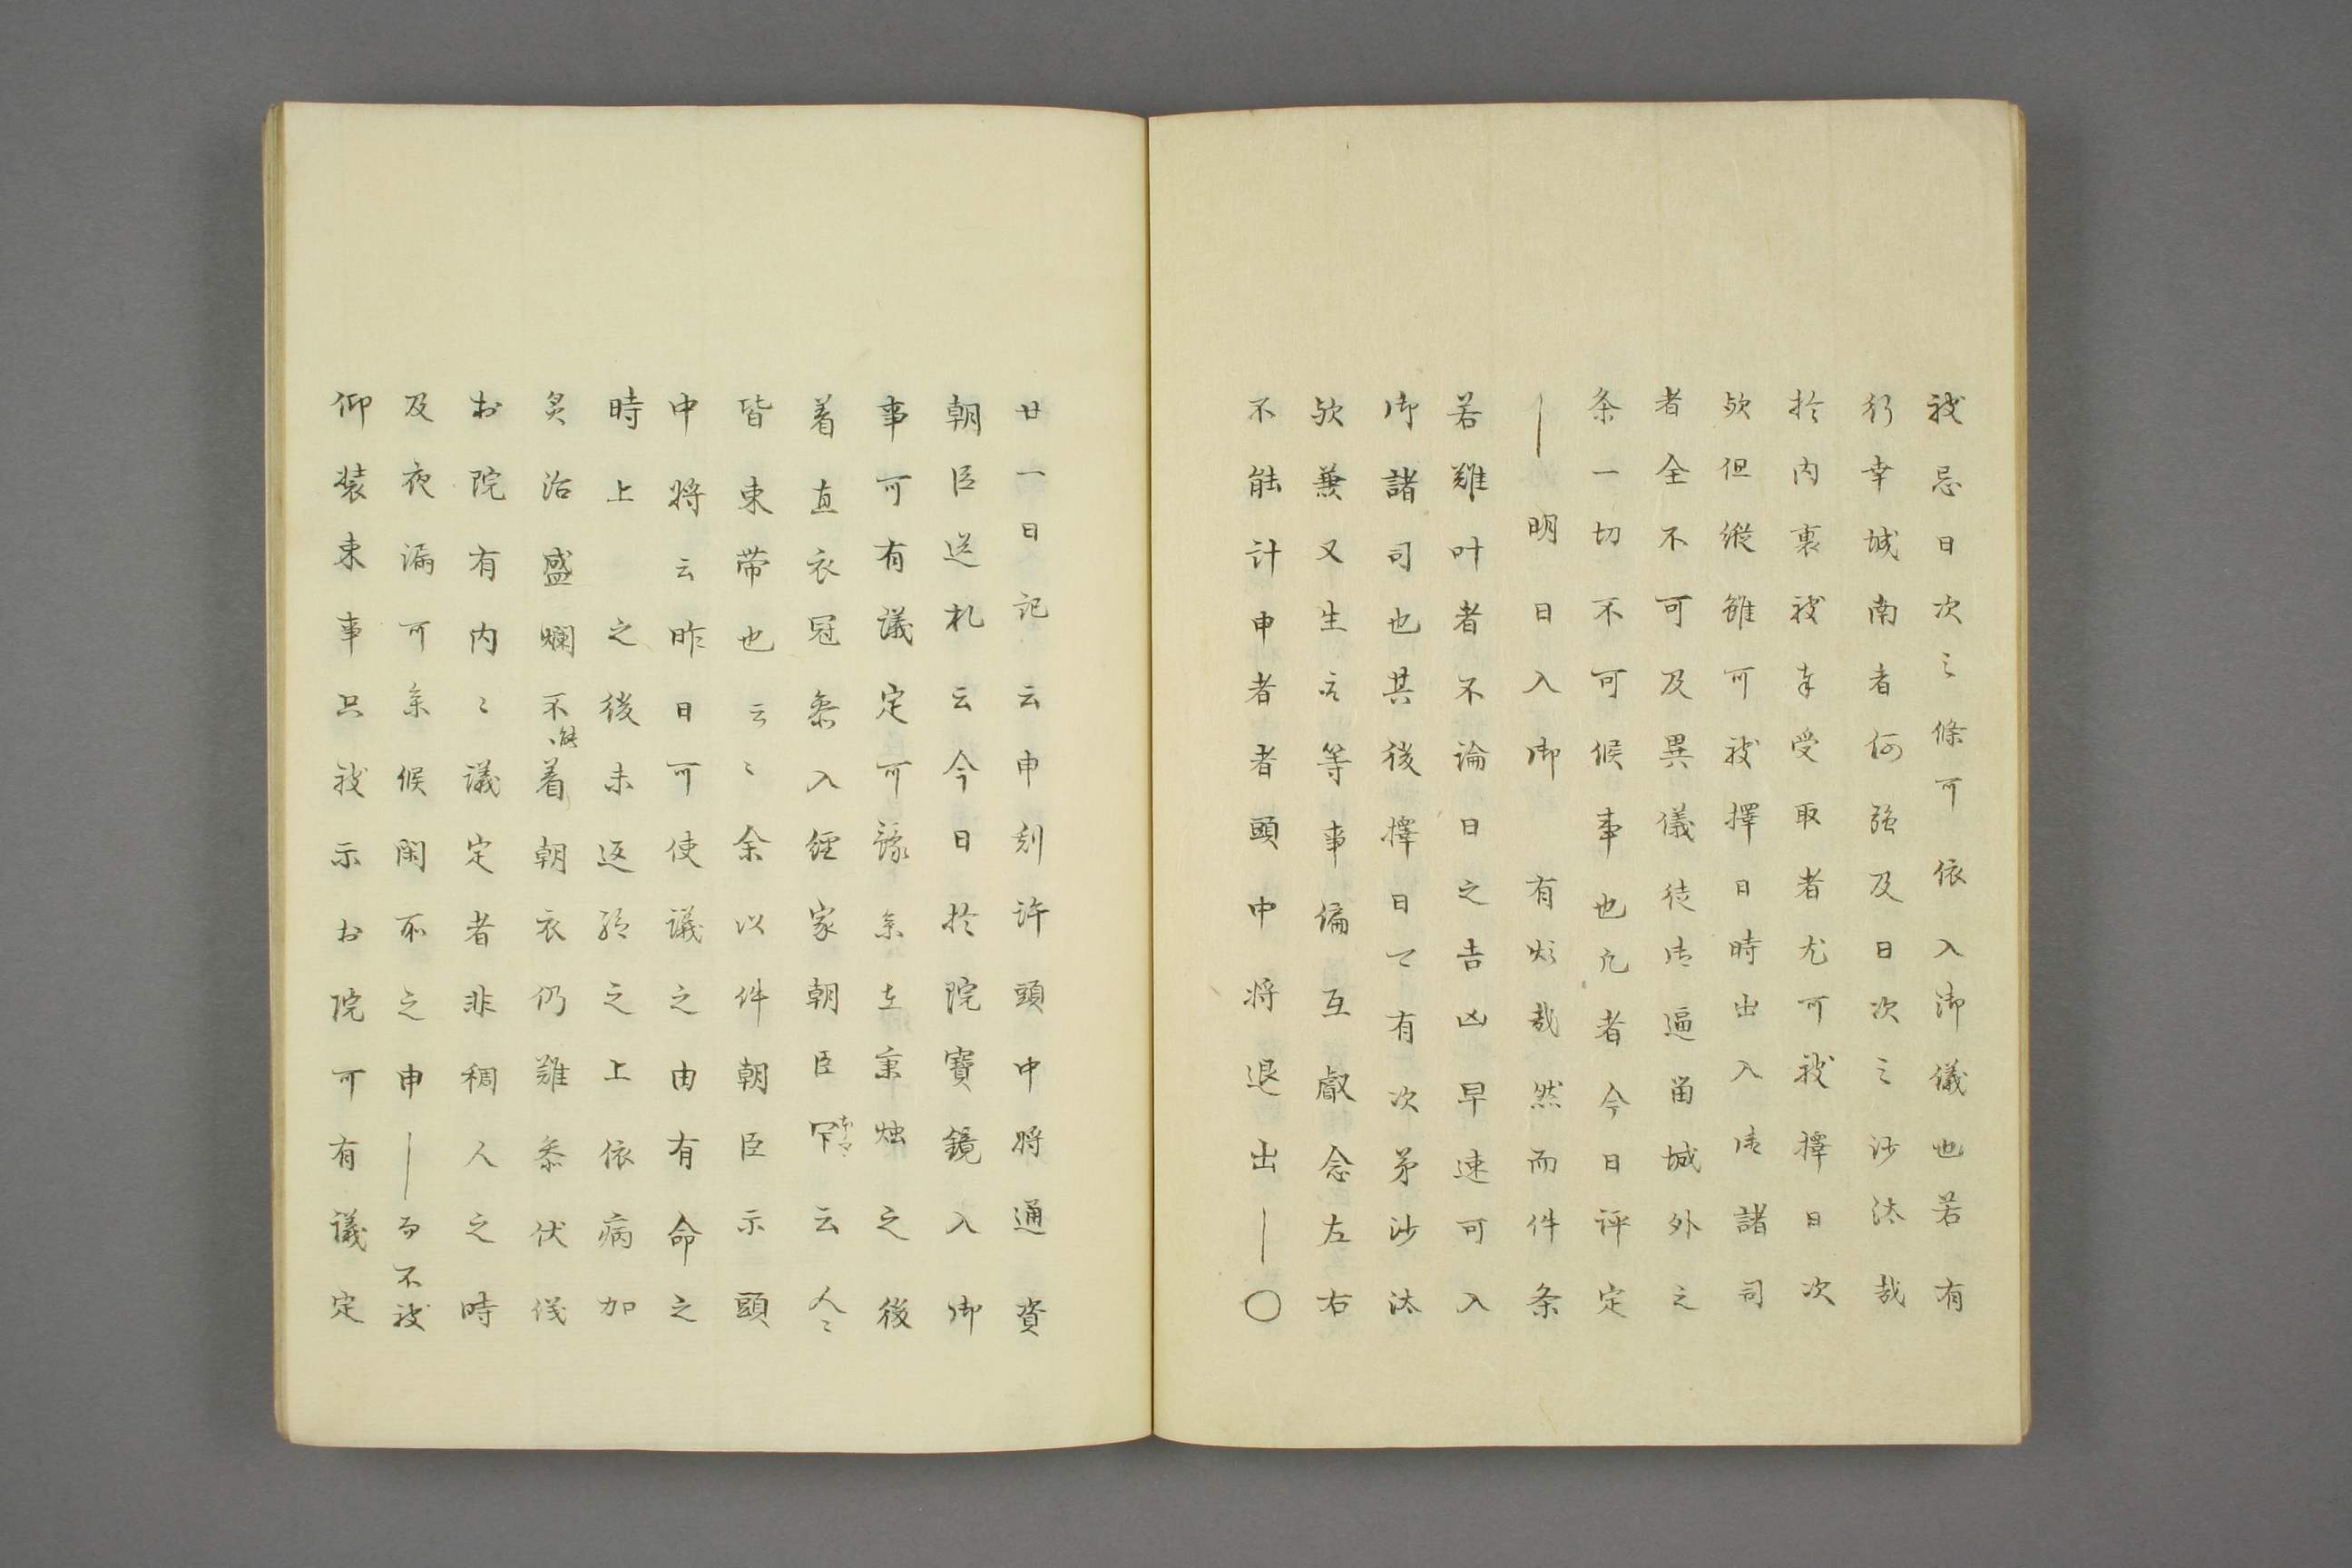 被忌日次之條可依入御儀也若有
行幸城南者何強及日次之沙汰哉
於内裏被奉受取者尤可被擇日次
欤但縦雖可被擇日時出入御諸司
者全不可及異儀徒御逼留城外之
条一切不可候事也凡者今日評定
｜明日入御　有㷔哉然而件条
若難叶者不論日之吉凶早速可入
御諸司也其後擇日了有次第沙汰
欤兼又生言等事偏互叡念左右
不能計申者者頭中将退出｜〇
廿一日記云申刻許頭中将通資
朝臣送札云今日於院寶鏡入御
事可有議定可豫参者秉燭之後
着直衣冠参入経家朝臣下云人々
皆束帯也云々余以件朝臣示頭
中将云昨日可使議之由有命之
時上　之後未返給之上依病加
灸治盛爛不能着朝衣仍難参伏儀
於院有内々議定者非稠人之時
及夜漏可参候閑所之申｜而不被
仰装束事只被示於院可有議定